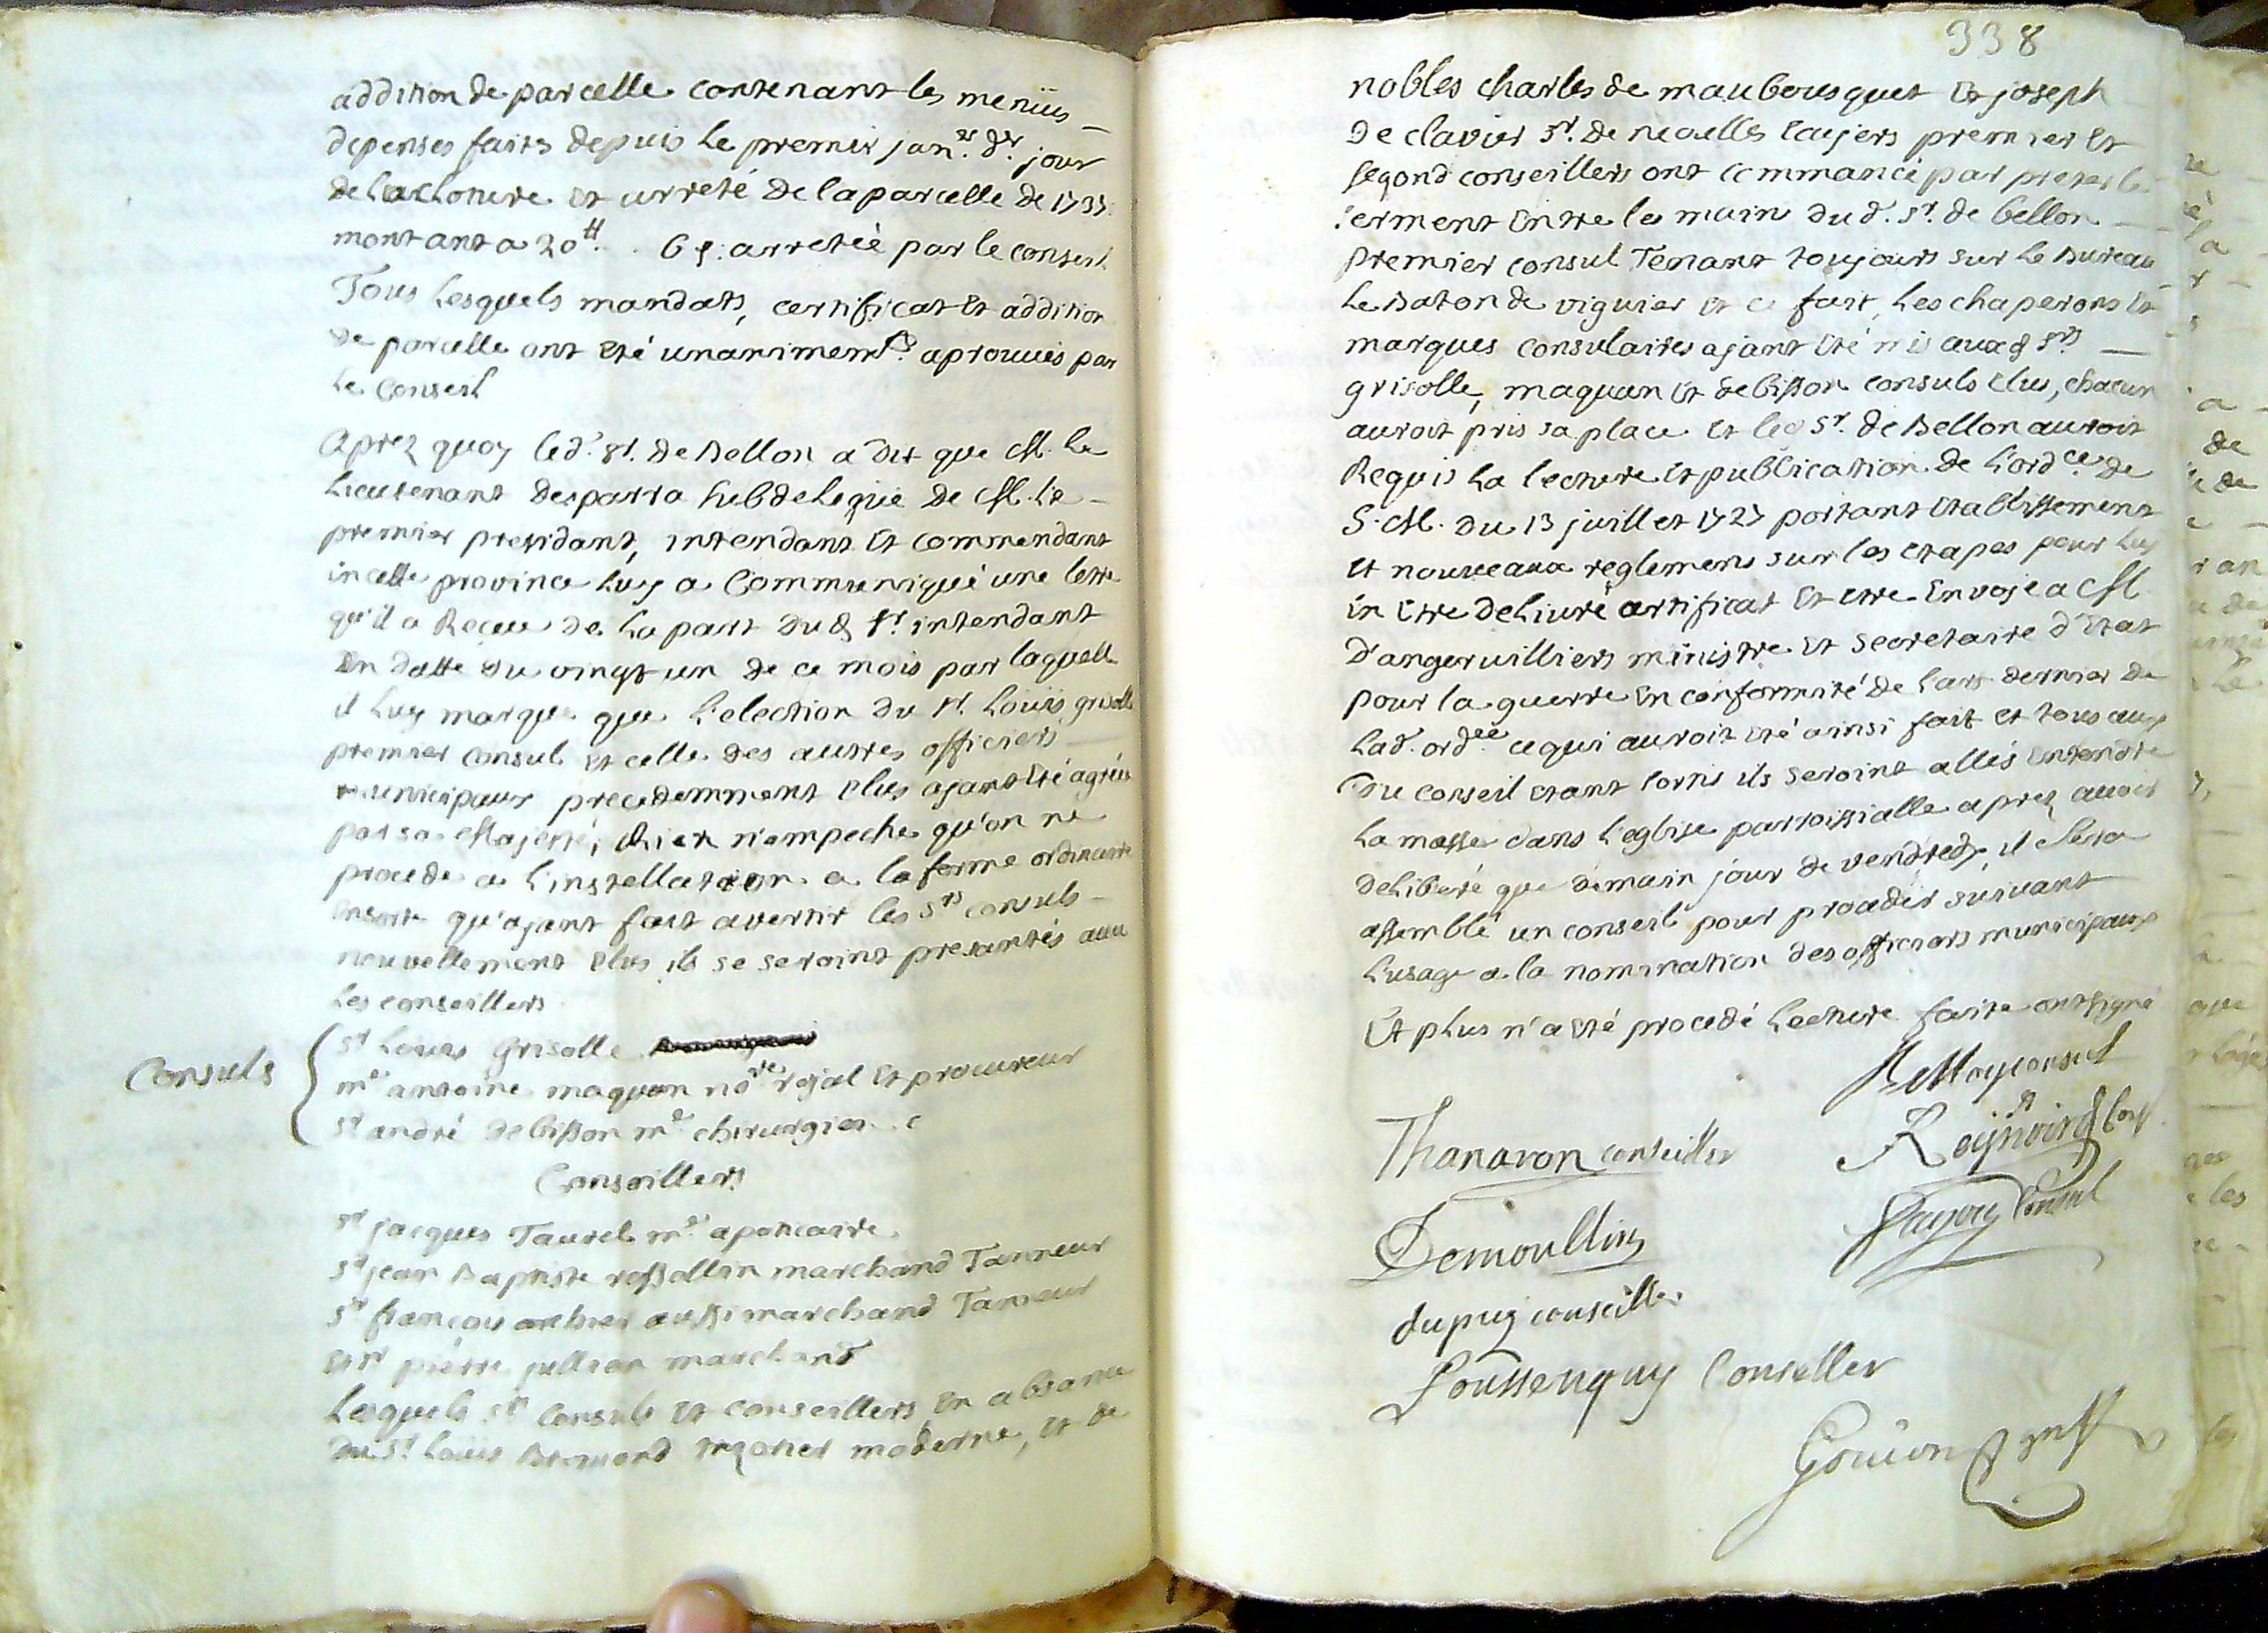 addition de parcelle contenant les menües
depenses faites depuis le premier jan.er d.er jour
de la cloture et arreté de la parcelle de 1737
montant a 20 ₶. 6 s. arretée par le conseil
Tous lesquels mandats, certificat et addition
de parcelle ont eté unanimemt. aprouvés par
le conseil
Aprez quoy led. Sr. de Bellon a dit que M. le
Lieutenant desparra subdelegué de M. le
premier presidant, intendant et commendant
en cette province luy a communiqué une letre
qu'il a Receu de la part dud. Sr. intendant
en datte du vingt un de ce mois par laquelle
il luy marque que l'election du Sr. Louis grisolle
premier consul et celle des autres officiers
municipaux precedemment elus ajant eté agréée
par sa Majesté, Rien n'empeche qu'on ne
procede a l'instellation a la forme ordinaire
ensorte qu'ajant fait avertir les Srs consuls
nouvellement elus ils se seroint presantés avec
les conseillers
Consuls
Sr Louis Grisolle
me antoine maquan nore rojal et procureur
Sr andré debisson me chirurgien
Conseillers
Sr jacques Taurel me apoticaire
Sr jean Baptiste rossollin marchand Tanneur
Sr françois archier aussi marchand Taneur
et Sr pierre jullian marchand
Lesquels Srs consuls et conseillers en absance
du Sr. Louis Bremond moderne, et de
338
nobles charles de maubousquet et joseph
de clavier Sr. de neoulles ecujers premier et
segond conseillers ont commancé par preter le
serment entre les mains dud. Sr. de bellon
premier consul Tenant toujours sur le Bureau
le Baton de viguier et ce fait, les chaperons et
marques consulaires ajant eté mis auxd. Srs
grisolle, maquan et debisson consuls elus, chacun
auroit pris sa place et led. Sr. de Bellon auroit
Requis la lecture et publication de l'ordce de
S. M. du 13 juillet 1727 portant etablissement
et nouveaux reglemens sur les etapes pour luy
en etre delivré certificat et etre envoyé a M.
d'angervilliers ministre et secretaire d'etat
pour la guerre en conformité de l'art. dernier de
lad. ordce ce qui auroit eté ainsi fait et tous ceux
du conseil etant sortis ils seroint allés entendre
la messe dans l'eglise parroissialle aprez avoir
deliberé que demain jour de vendredy il sera
assemblé un conseil pour proceder suivant
l'usage a la nomination des officiers municipaux
Et plus n'a eté procedé lecture faite ont signé
consul
Thanaron conseiller
Raynoird
Demoullin
consul
dupuy conseiller
Foussenquy Conseller
Gouion greff